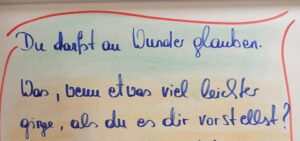 Du darfst an Wunder glauben.
Was, wenn etwas viel leichter
ginge, als du es dir vorstellst?